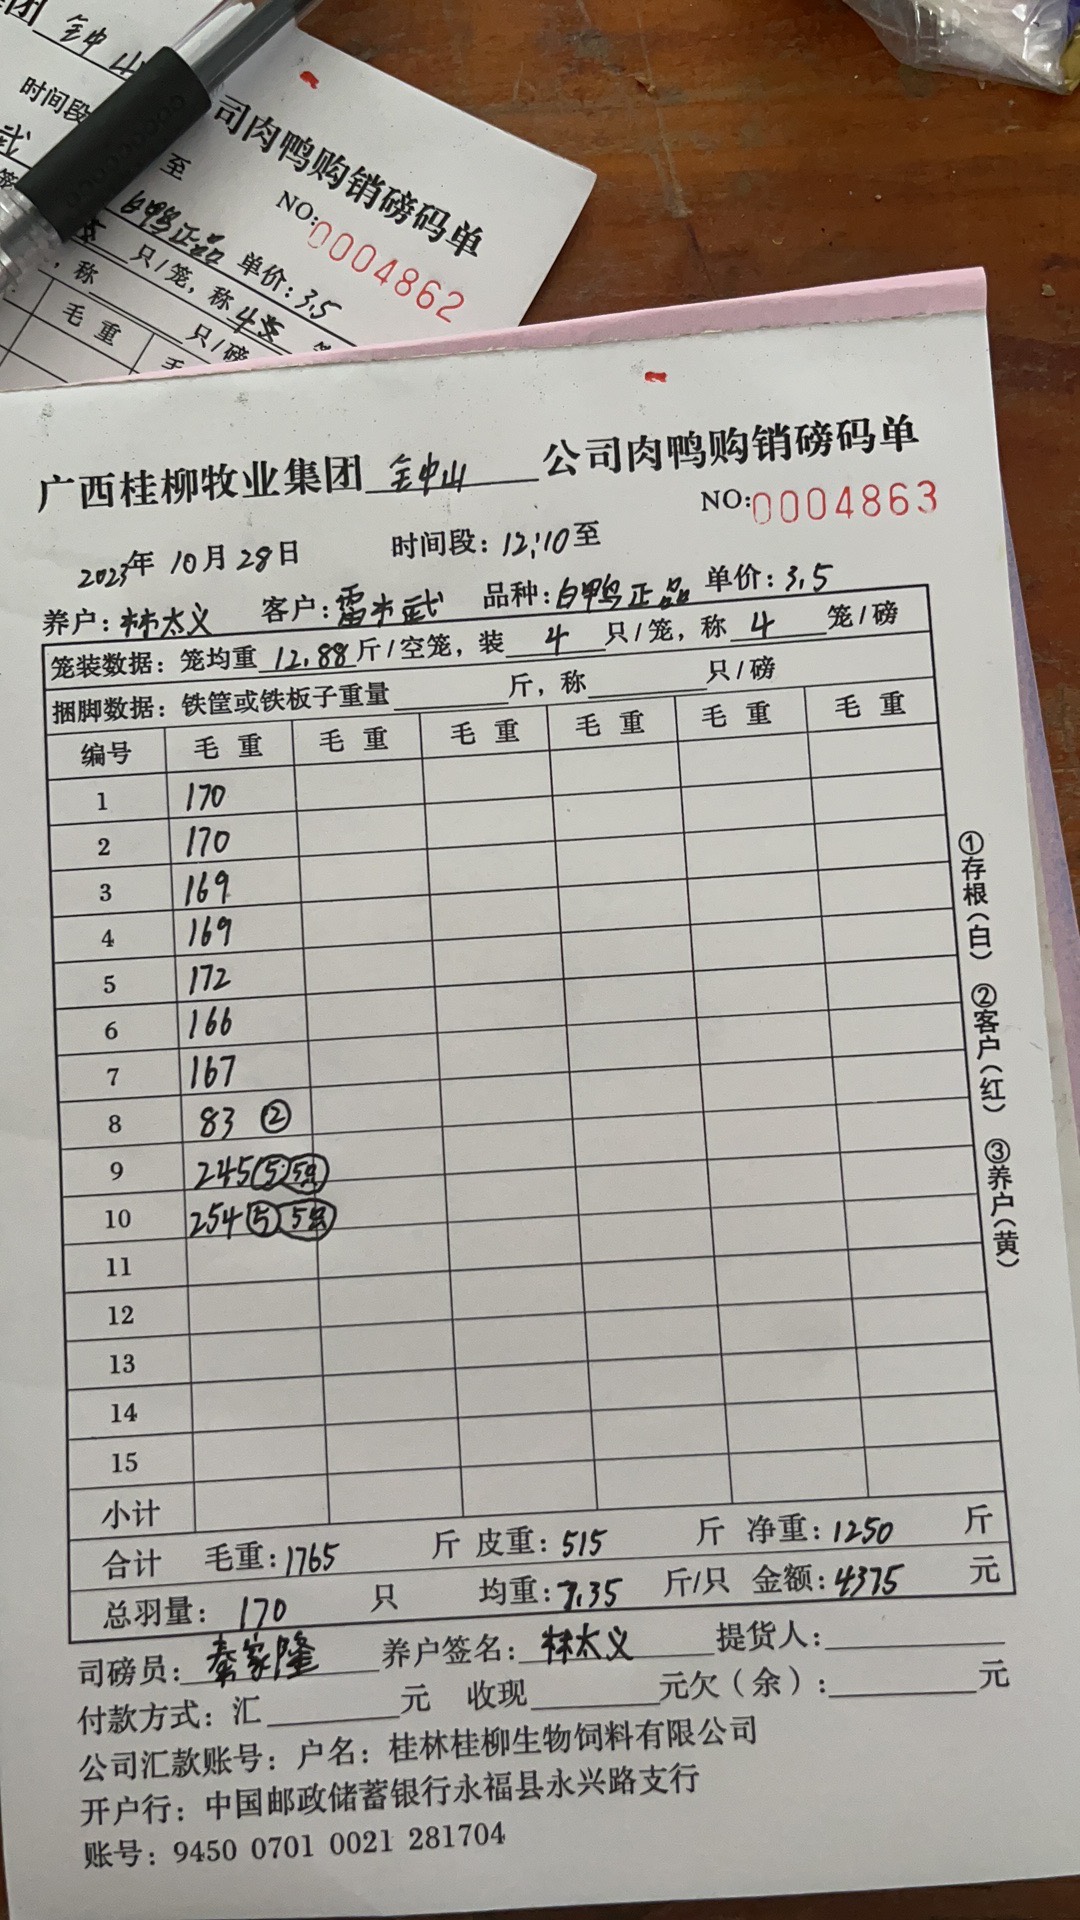 团 金中山
公司肉鸭购销磅码单
时间段
至
NO:0004862
白鸭正品 单价:3.5
只/笼，称 4
，称 只/磅
毛 重
广西桂柳牧业集团 金中山 公司肉鸭购销磅码单
NO:0004863
2023年 10月 28日 时间段: 12:10至
养户: 林太义 客户: 雷木武 品种: 白鸭正品 单价: 3.5
笼装数据: 笼均重 12.88 斤/空笼，装 4 只/笼，称 4 笼/磅
捆脚数据: 铁筐或铁板子重量 斤，称 只/磅
编号 毛 重 毛 重 毛 重 毛 重 毛 重 毛 重
1 170
2 170
3 169
4 169
5 172
6 166
7 167
8 83 ②
9 245 ⑤
10 254 ⑤
11
12
13
14
15
小计
合计 毛重: 1765 斤 皮重: 515 斤 净重: 1250 斤
总羽量: 170 只 均重: 7.35 斤/只 金额: 4375 元
司磅员: 秦家隆 养户签名: 林太义 提货人:
付款方式: 汇 元 收现 元欠（余）: 元
公司汇款账号: 户名: 桂林桂柳生物饲料有限公司
开户行: 中国邮政储蓄银行永福县永兴路支行
账号: 9450 0701 0021 281704
①存根(白) ②客户(红) ③养户(黄)